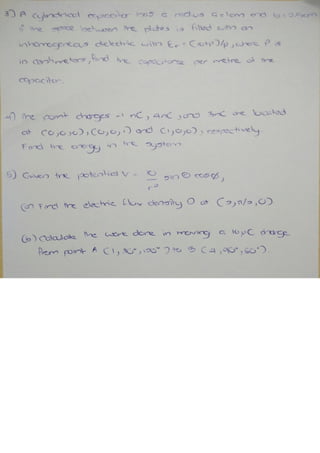 3) A cylindrical capacitor has a radius a=1cm and b=2.5cm
if the space between the plates is filled with an
inhomogeneous dielectric with Er = (10+P)/P, where P is
in centimeters, find the capacitance per metre of the
capacitor.
4) The point charges -1 nC, 4nC, and 3nC are located
at (0,0,0), (0,0,1) and (1,0,0), respectively.
Find the energy in the system
5) Given the potential V = 10/r² sin θ cos Ø,
(a) Find the electric flux density D at (2, π/2, 0)
(b) Calculate the work done in moving a 10μC charge
from point A (1, 30°, 120°) to B (4, 90°, 60°).